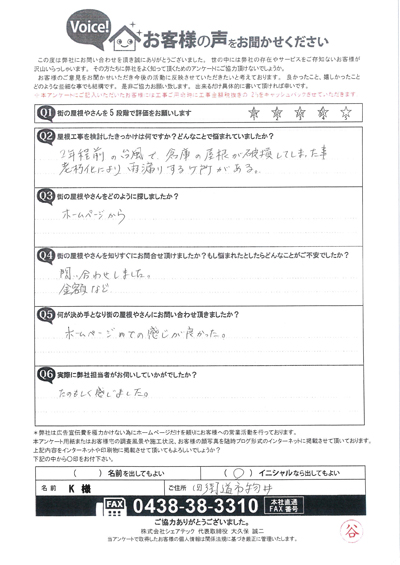 Voice!
お客様の声をお聞かせください
この度は弊社にお問い合わせを頂き誠にありがとうございました。世の中には弊社の存在やサービスをご存知ないお客様が
沢山いらっしゃいます。その方たちに弊社をよく知って頂くためのアンケートにご協力頂けないでしょうか。
お客様のご意見をお聞かせいただき今後の活動に反映させていただきたいと考えております。良かったこと、嬉しかったこと
どのような些細な事でも結構です。是非ご協力お願い致します。出来るだけ具体的に書いて頂ければ幸いです。
Q1 街の屋根やさんを5段階で評価をお願いします
Q2 屋根工事を検討したきっかけは何ですか?どんなことで悩まれていましたか?
2年程前の台風で、倉庫の屋根が破損してしまった事
老朽化により雨漏りするケ所がある。
Q3 街の屋根やさんをどのように探しましたか?
ホームページから
Q4 街の屋根やさんを知りすぐにお問合せ頂けましたか?もし悩まれたとしたらどんなことがご不安でしたか?
問い合わせしました。
金額など
Q5 何が決め手となり街の屋根やさんにお問い合わせ頂けましたか?
ホームページめての感じが良かった。
Q6 実際に弊社担当者がお伺いしていかがでしたか?
たのもしく感じました。
*弊社は広告宣伝費を極力かけない為にホームページだけを頼りにお客様への営業活動を行っております。
本アンケート用紙またはお客様宅の調査風景や施工状況、お客様の顔写真を随時ブログ形式のインターネットに掲載させて頂いております。
上記内容をインターネットや印刷物に掲載させて頂いてもよろしいでしょうか?
下記の中から〇印をお付け下さい。
( ) 名前を出してもよい
(〇) イニシャルなら出してもよい
名前 K 様
ご住所
FAX 0438-38-3310 本社直通 FAX番号
ご協力ありがとうございました。
株式会社シェアテック 代表取締役 大久保 誠二
当アンケートで取得したお客様の個人情報は関係法規に基づき厳正に管理いたします。
谷